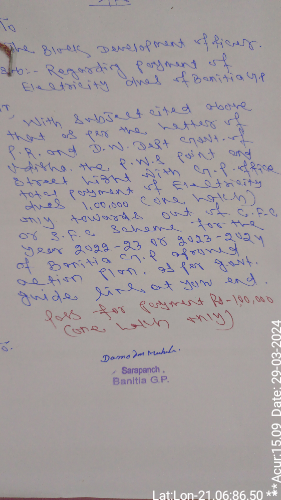 To
The Block Development officer.
Sub:- Regarding payment of
Electricity dues of Banitia G.P
With subject cited above
that as per the letter of
P.R. and D.W. Dept Govt. of
the P.W.S point and
Street Light with G.P. office
total payment of Electricity
dues 1,00,000 (one lakh)
only towards out of C.F.C
or S.F.C Scheme for the
year 2022-23 or 2023-2024
of Banitia G.P
action plan. as per govt.
guide lines at your end.
Pass for payment Rs-100,000
(one lakh only)
Sarapanch,
Banitia G.P.
Lat:Lon-21.06:86.50
**Acur:15.09 Date: 29-03-2024